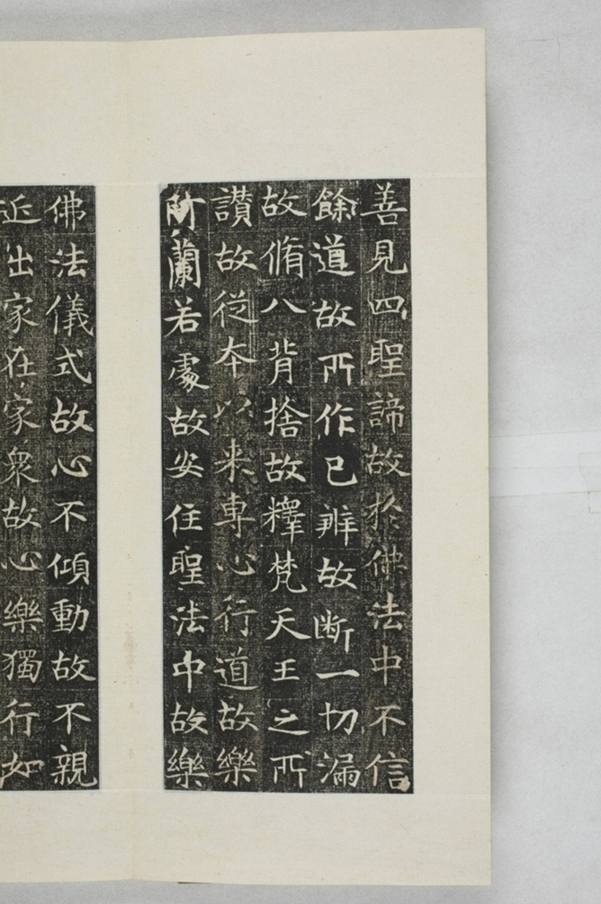 善見四聖諦故於佛法中不信
餘道故所作已辦故断一切漏
故脩八背捨故釋梵天王之所
讃故從本以来專心行道故樂
阿蘭若處故安住聖法中故樂
佛法儀式故心不傾動故不親
近出家在家衆故心樂獨行如